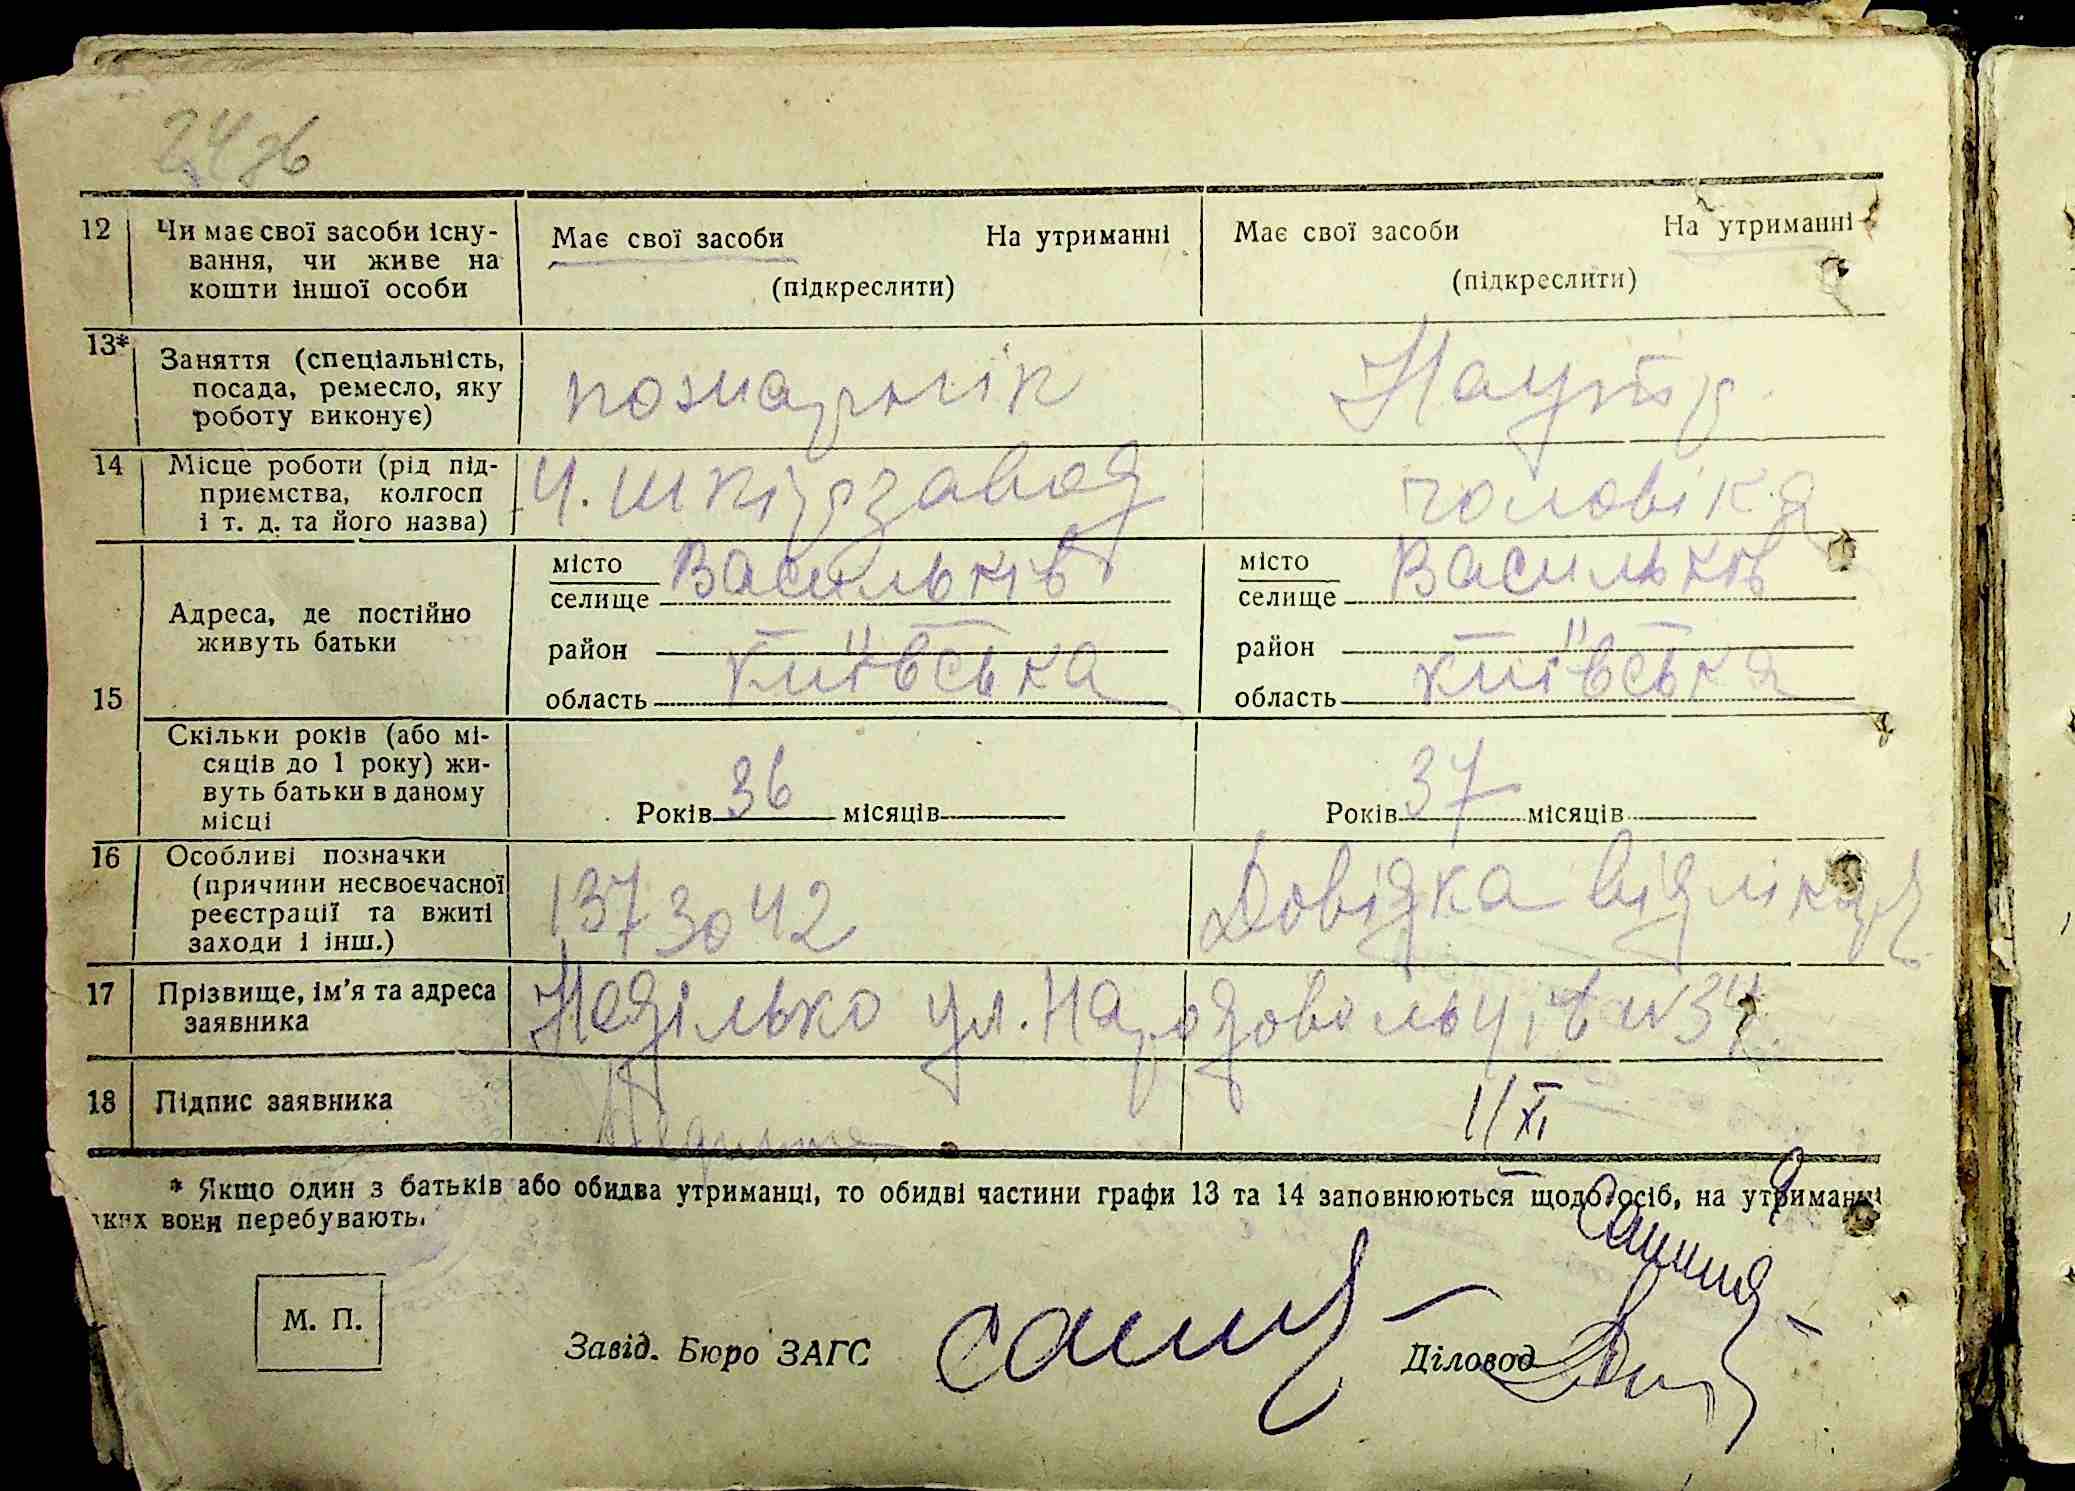 24зв
12 Чи має свої засоби існу-
вання, чи живе на
кошти іншої особи
Має свої засоби На утриманні
(підкреслити)
Має свої засоби На утриманні
(підкреслити)
13* Заняття (спеціальність,
посада, ремесло, яку
роботу виконує)
пожарнік
На утр.
14 Місце роботи (рід під-
приємства, колгосп
і т. д. та його назва)
Ч. шкірзавод
чоловіка
15 Адреса, де постійно
живуть батьки
місто
селище Васильків
район — " —
область Київська
місто
селище Васильків
район — " —
область Київська
Скільки років (або мі-
сяців до 1 року) жи-
вуть батьки в даному
місці
Років 36 місяців
Років 37 місяців
16 Особливі позначки
(причини несвоєчасної
реєстрації та вжиті
заходи і інш.)
1373042
Довідка від лікар
17 Прізвище, ім'я та адреса
заявника
Неділько ул. Народовольців №34
18 Підпис заявника
11/XI
* Якщо один з батьків або обидва утриманці, то обидві частини графи 13 та 14 заповнюються щодо осіб, на утриманні
яких вони перебувають.
М. П.
Завід. Бюро ЗАГС
Діловод